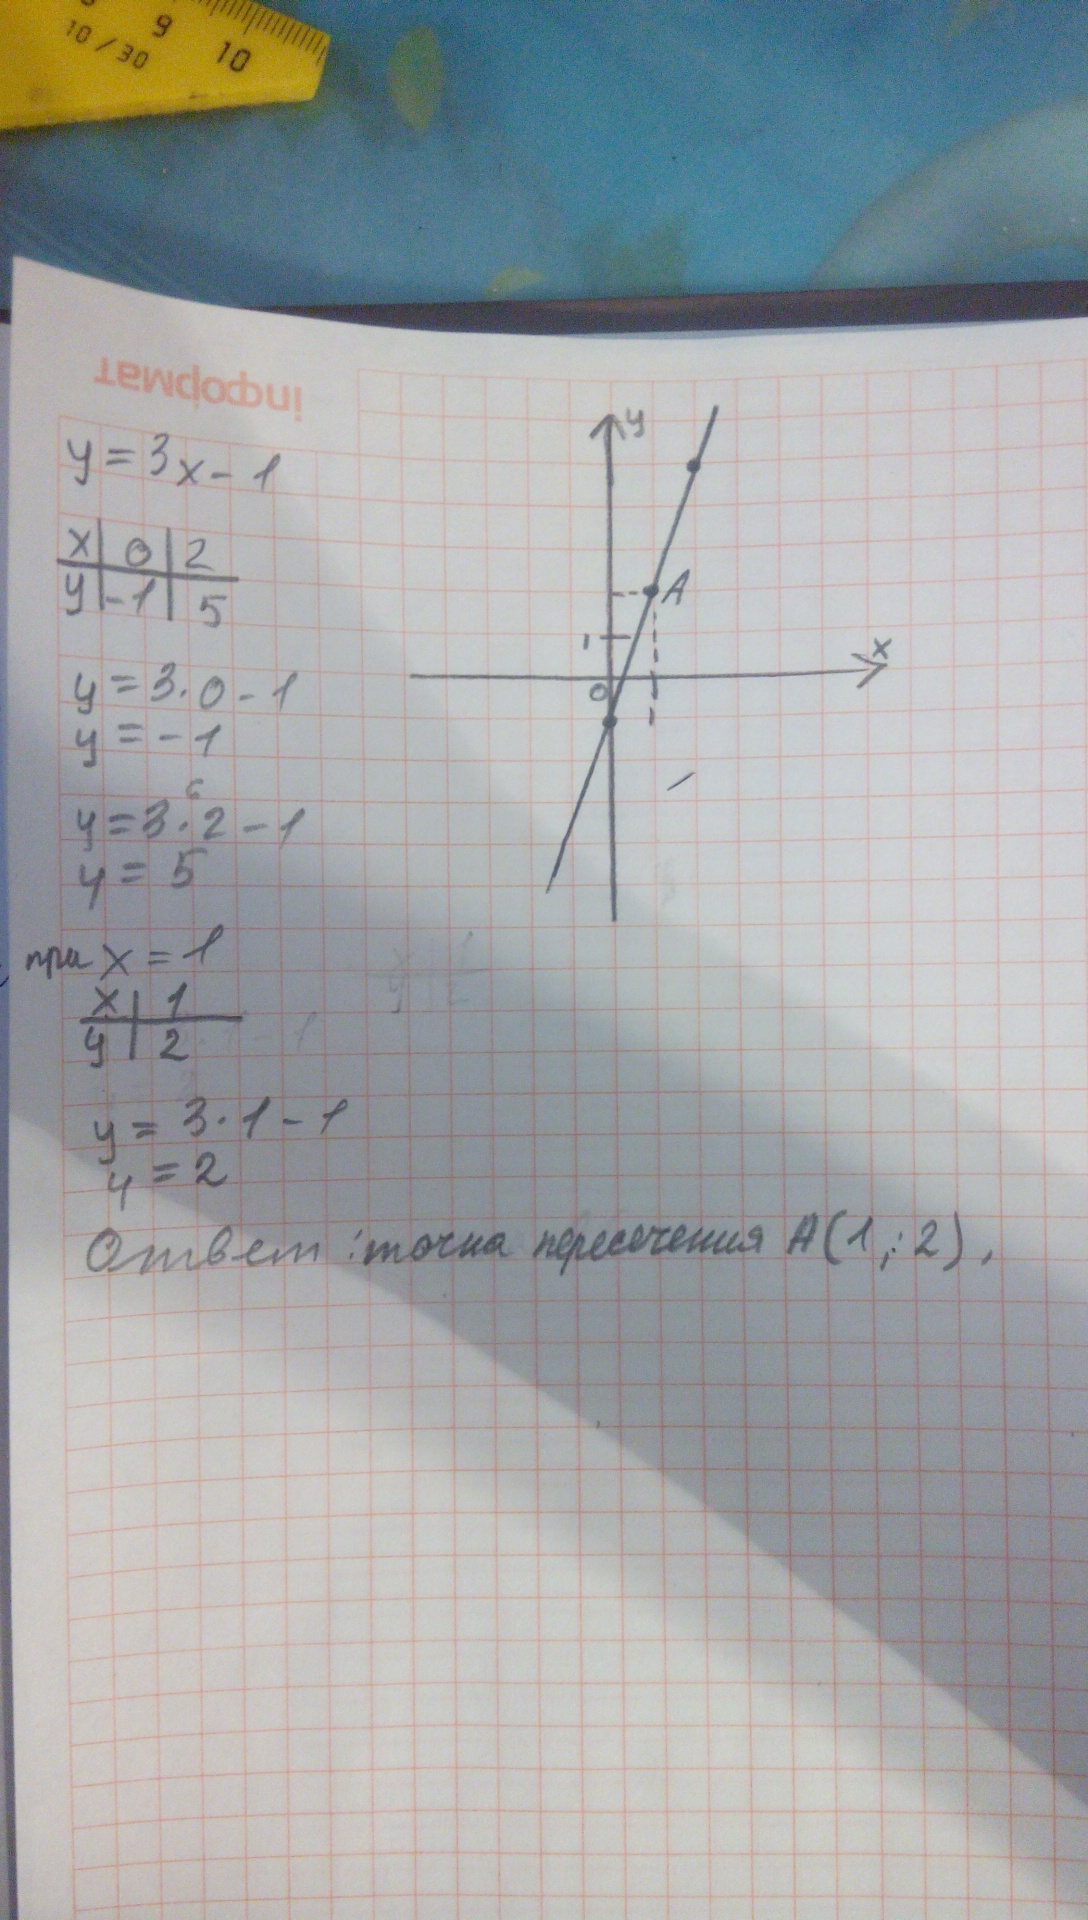 9
10
10/30
інформат
y = 3x - 1
x | 0 | 2
y | -1 | 5
y = 3·0 - 1
y = -1
6
y = 3·2 - 1
y = 5
при x = 1
x | 1
y | 2
y = 3·1 - 1
y = 2
Ответ: точка пересечения A(1; 2).
y
A
1
x
0